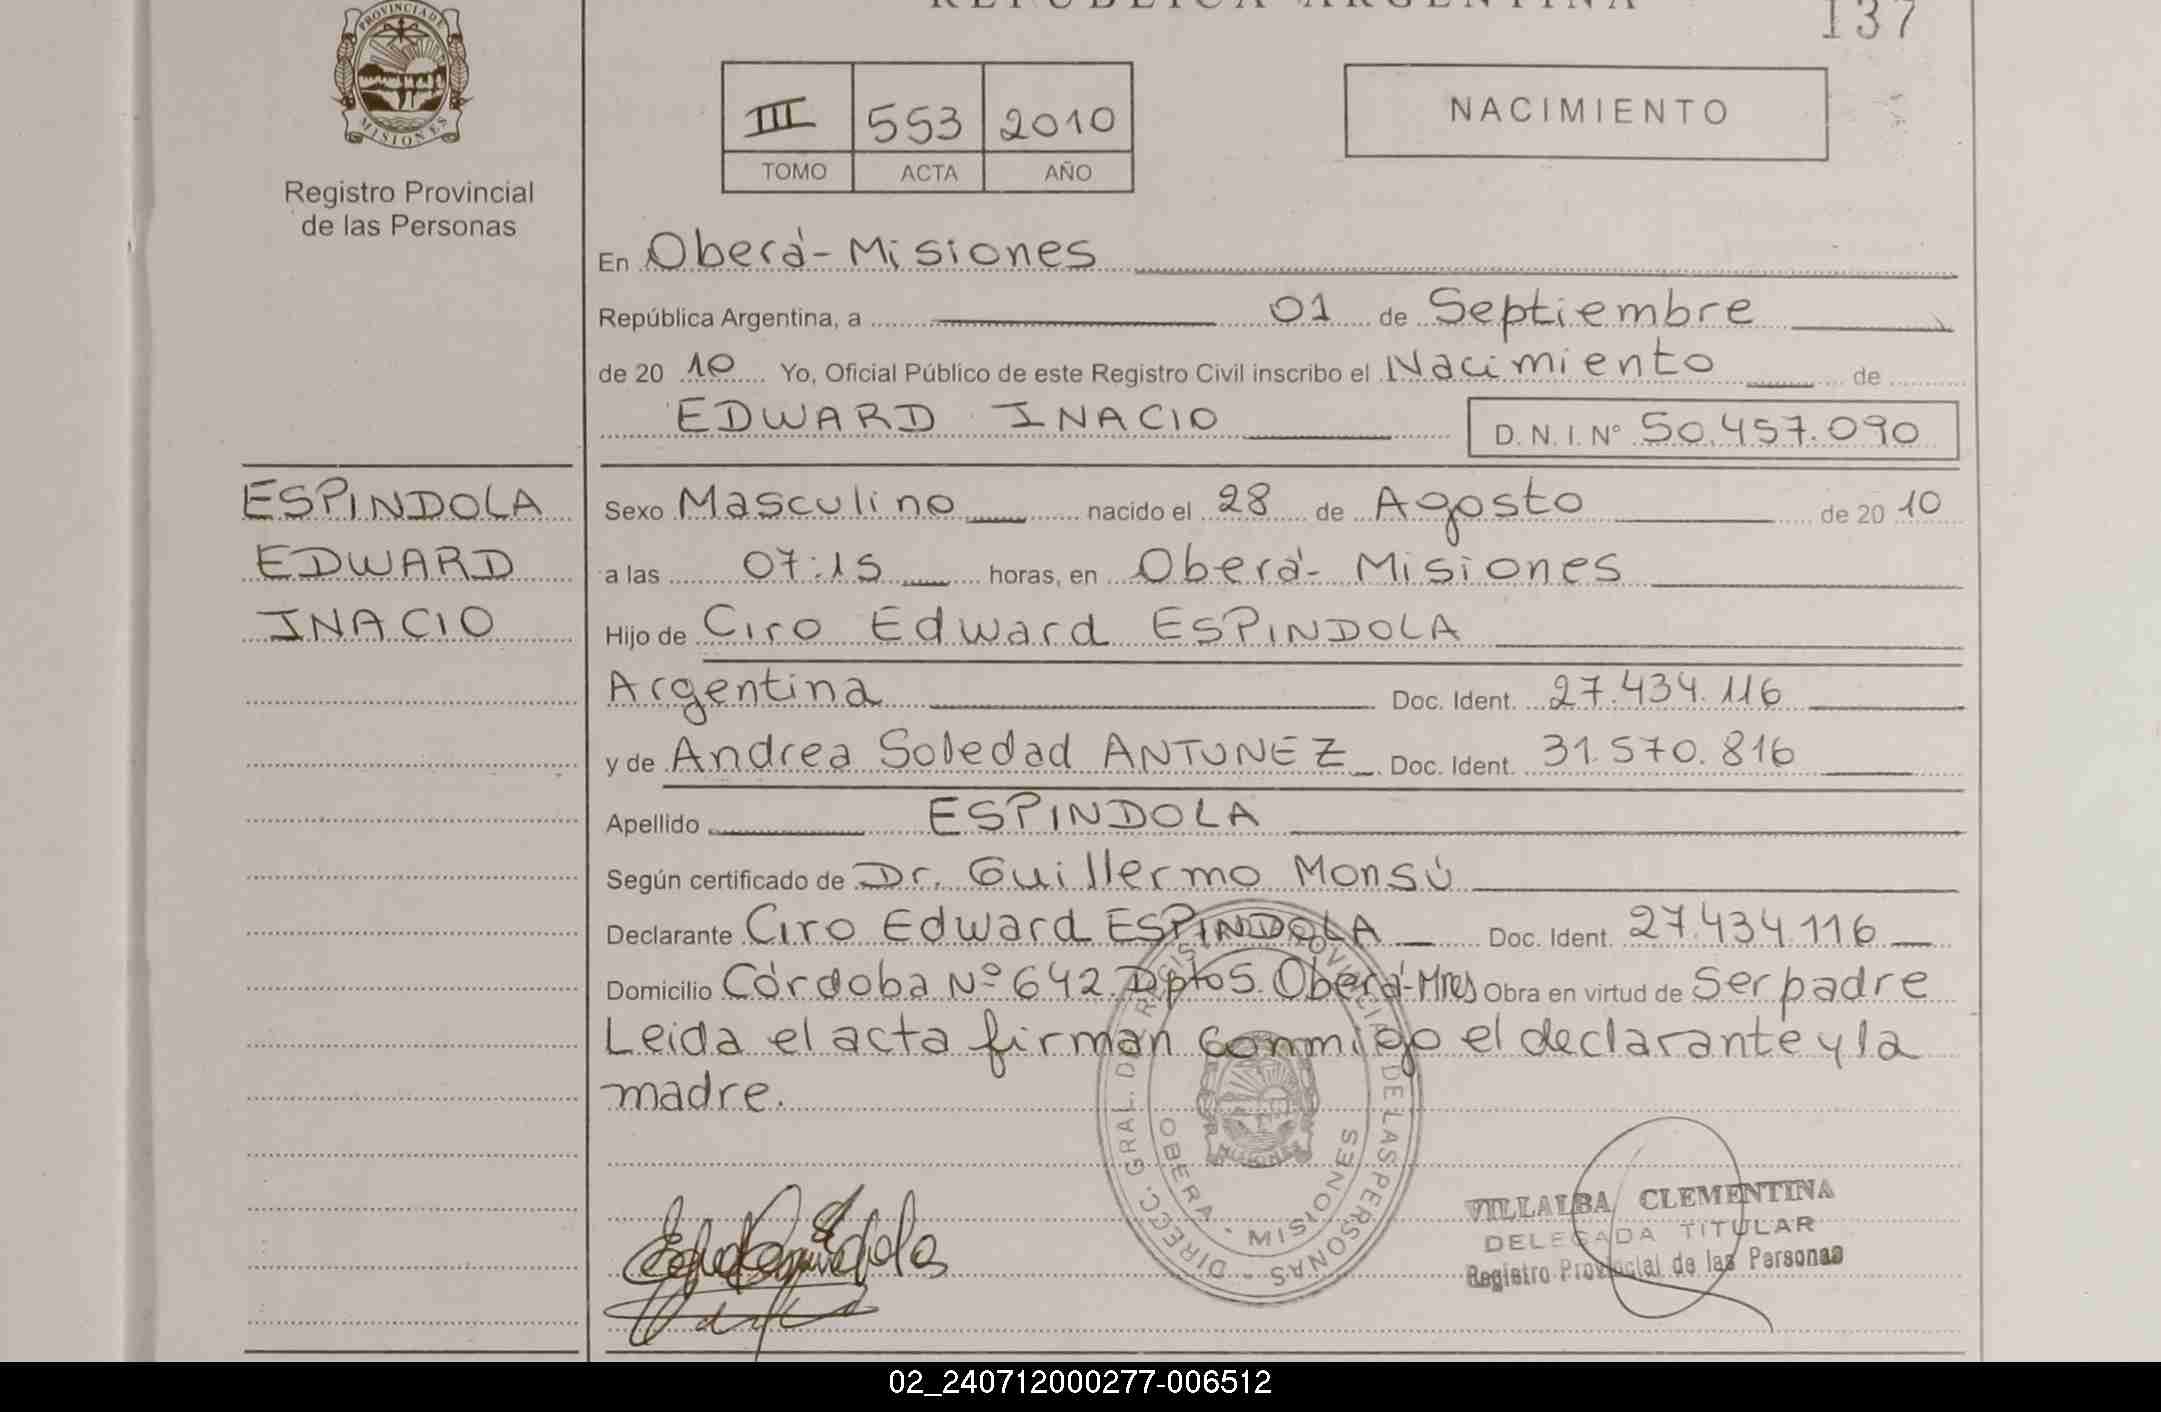 REPÚBLICA ARGENTINA
137
PROVINCIA DE
MISIONES
Registro Provincial
de las Personas
III 553 2010
TOMO ACTA AÑO
NACIMIENTO
En Oberá - Misiones
República Argentina, a 01 de Septiembre
de 20 10 Yo, Oficial Público de este Registro Civil inscribo el Nacimiento de
EDWARD INACIO D.N.I. Nº 50.457.090
ESPINDOLA
EDWARD
INACIO
Sexo Masculino nacido el 28 de Agosto de 20 10
a las 07:15 horas, en Oberá - Misiones
Hijo de Ciro Edward ESPINDOLA
Argentina Doc. Ident. 27.434.116
y de Andrea Soledad ANTUNEZ Doc. Ident. 31.570.816
Apellido ESPINDOLA
Según certificado de Dr. Guillermo Monsú
Declarante Ciro Edward ESPINDOLA Doc. Ident. 27.434.116
Domicilio Córdoba Nº 642 Dpto 5. Oberá - Mnes Obra en virtud de Ser padre
Leida el acta firman conmigo el declarante y la
madre.
DIRECC. GRAL. DE REGIS. PROVINCIAL DE LAS PERSONAS
OBERA - MISIONES
VILLALBA CLEMENTINA
DELEGADA TITULAR
Registro Provincial de las Personas
02_240712000277-006512